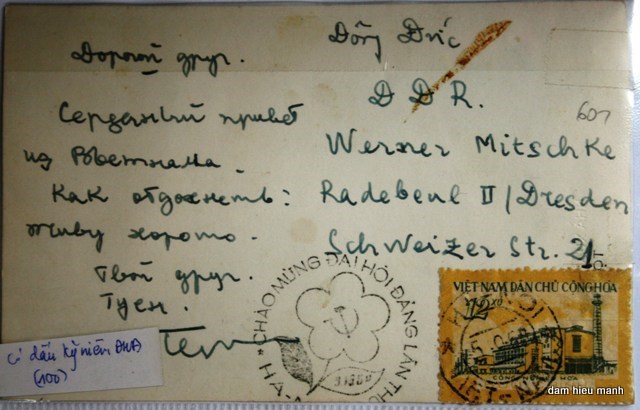 Дорогой друг.
Сердечный привет
из Вьетнама.
Как отдохнеть:
Живу хорошо.
Твой друг.
Туен.
Đông Đức
D D R.
601
Werner Mitschke
Radebeul II / Dresden
Schweizer Str. 21
"CHÀO MỪNG ĐẠI HỘI ĐẢNG LẦN THỨ
HÀ-
9.1960
VIỆT NAM DÂN CHỦ CỘNG HÒA
12 xu
HANOI
VIET-NAM
có dấu kỷ niệm ĐHĐ
(100)
dam hieu manh